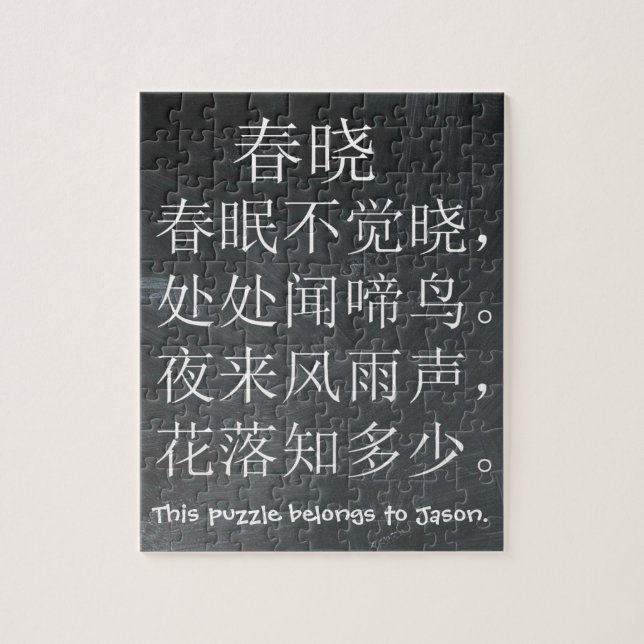 春晓
春眠不觉晓，
处处闻啼鸟。
夜来风雨声，
花落知多少。
This puzzle belongs to Jason.